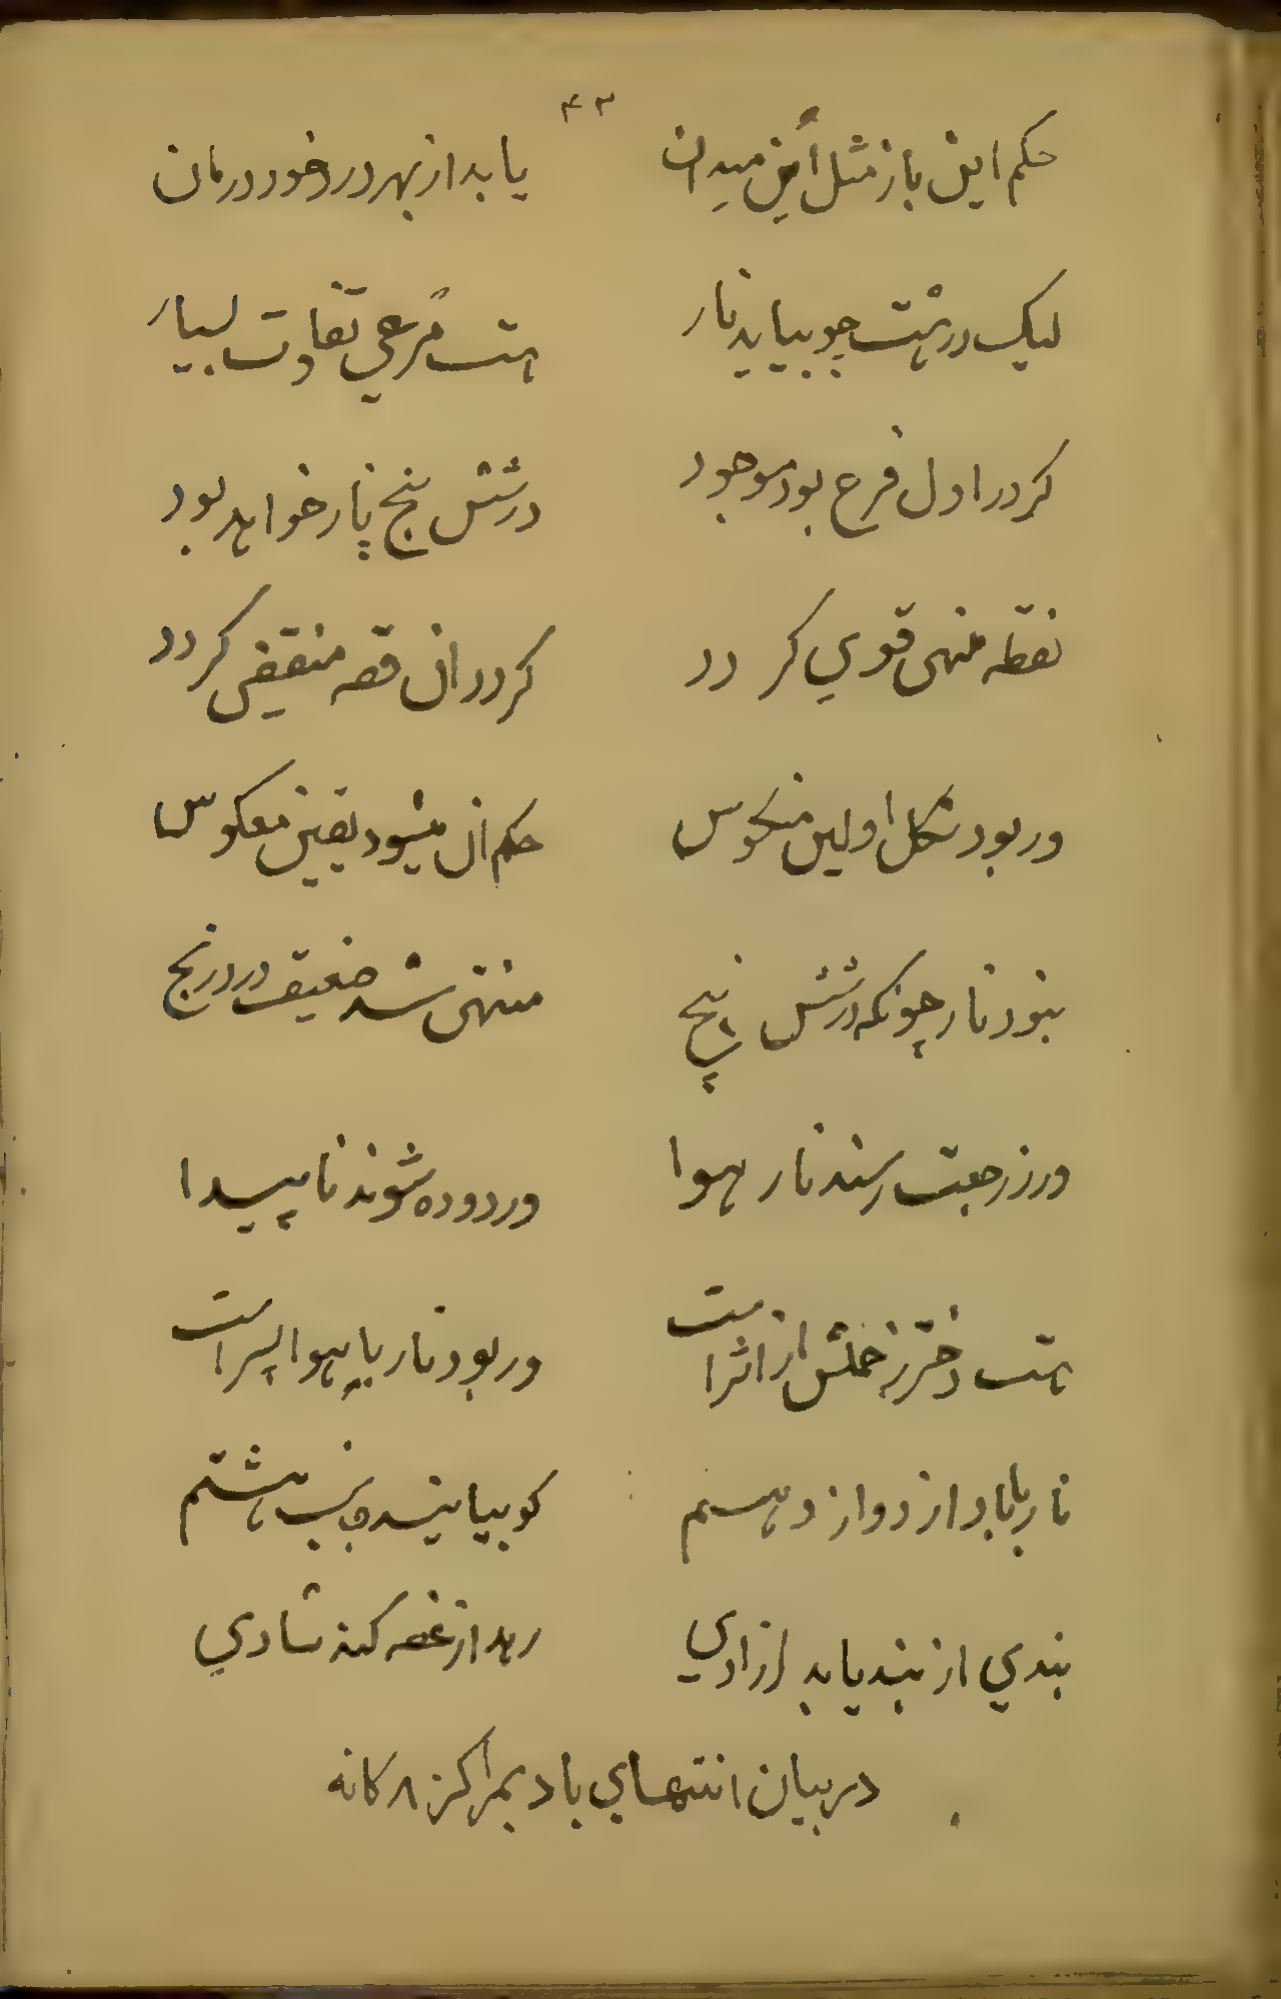 ۴۳
حکم این باز مثل این میدان یابد از بهر درد خود درمان
لیک در هشت چو بیاید نار هست فرعی تفاوت بسیار
کر در اول فرع بود موجود در شش پنج نار خواهد بود
نقطه منهی قوی کردد کردد ان قصه منقضی کردد
ور بود شکل اولین منحوس حکم ان میشود یقین معکوس
نبود نار چونکه در شش پنج منتهی شد ضعیف در رنج
ور ز رجعت رسند نار هوا ور دوده شوند ناپیدا
هست دختر از اثر است ور بود نار یا هوا پسر است
نار یا باد از دواز دهم کو بیایند هشتم
بندی از بند یابد ازادی رهد از غصه کند شادی
در بیان انتهای باد بمراکز ۸ کانه